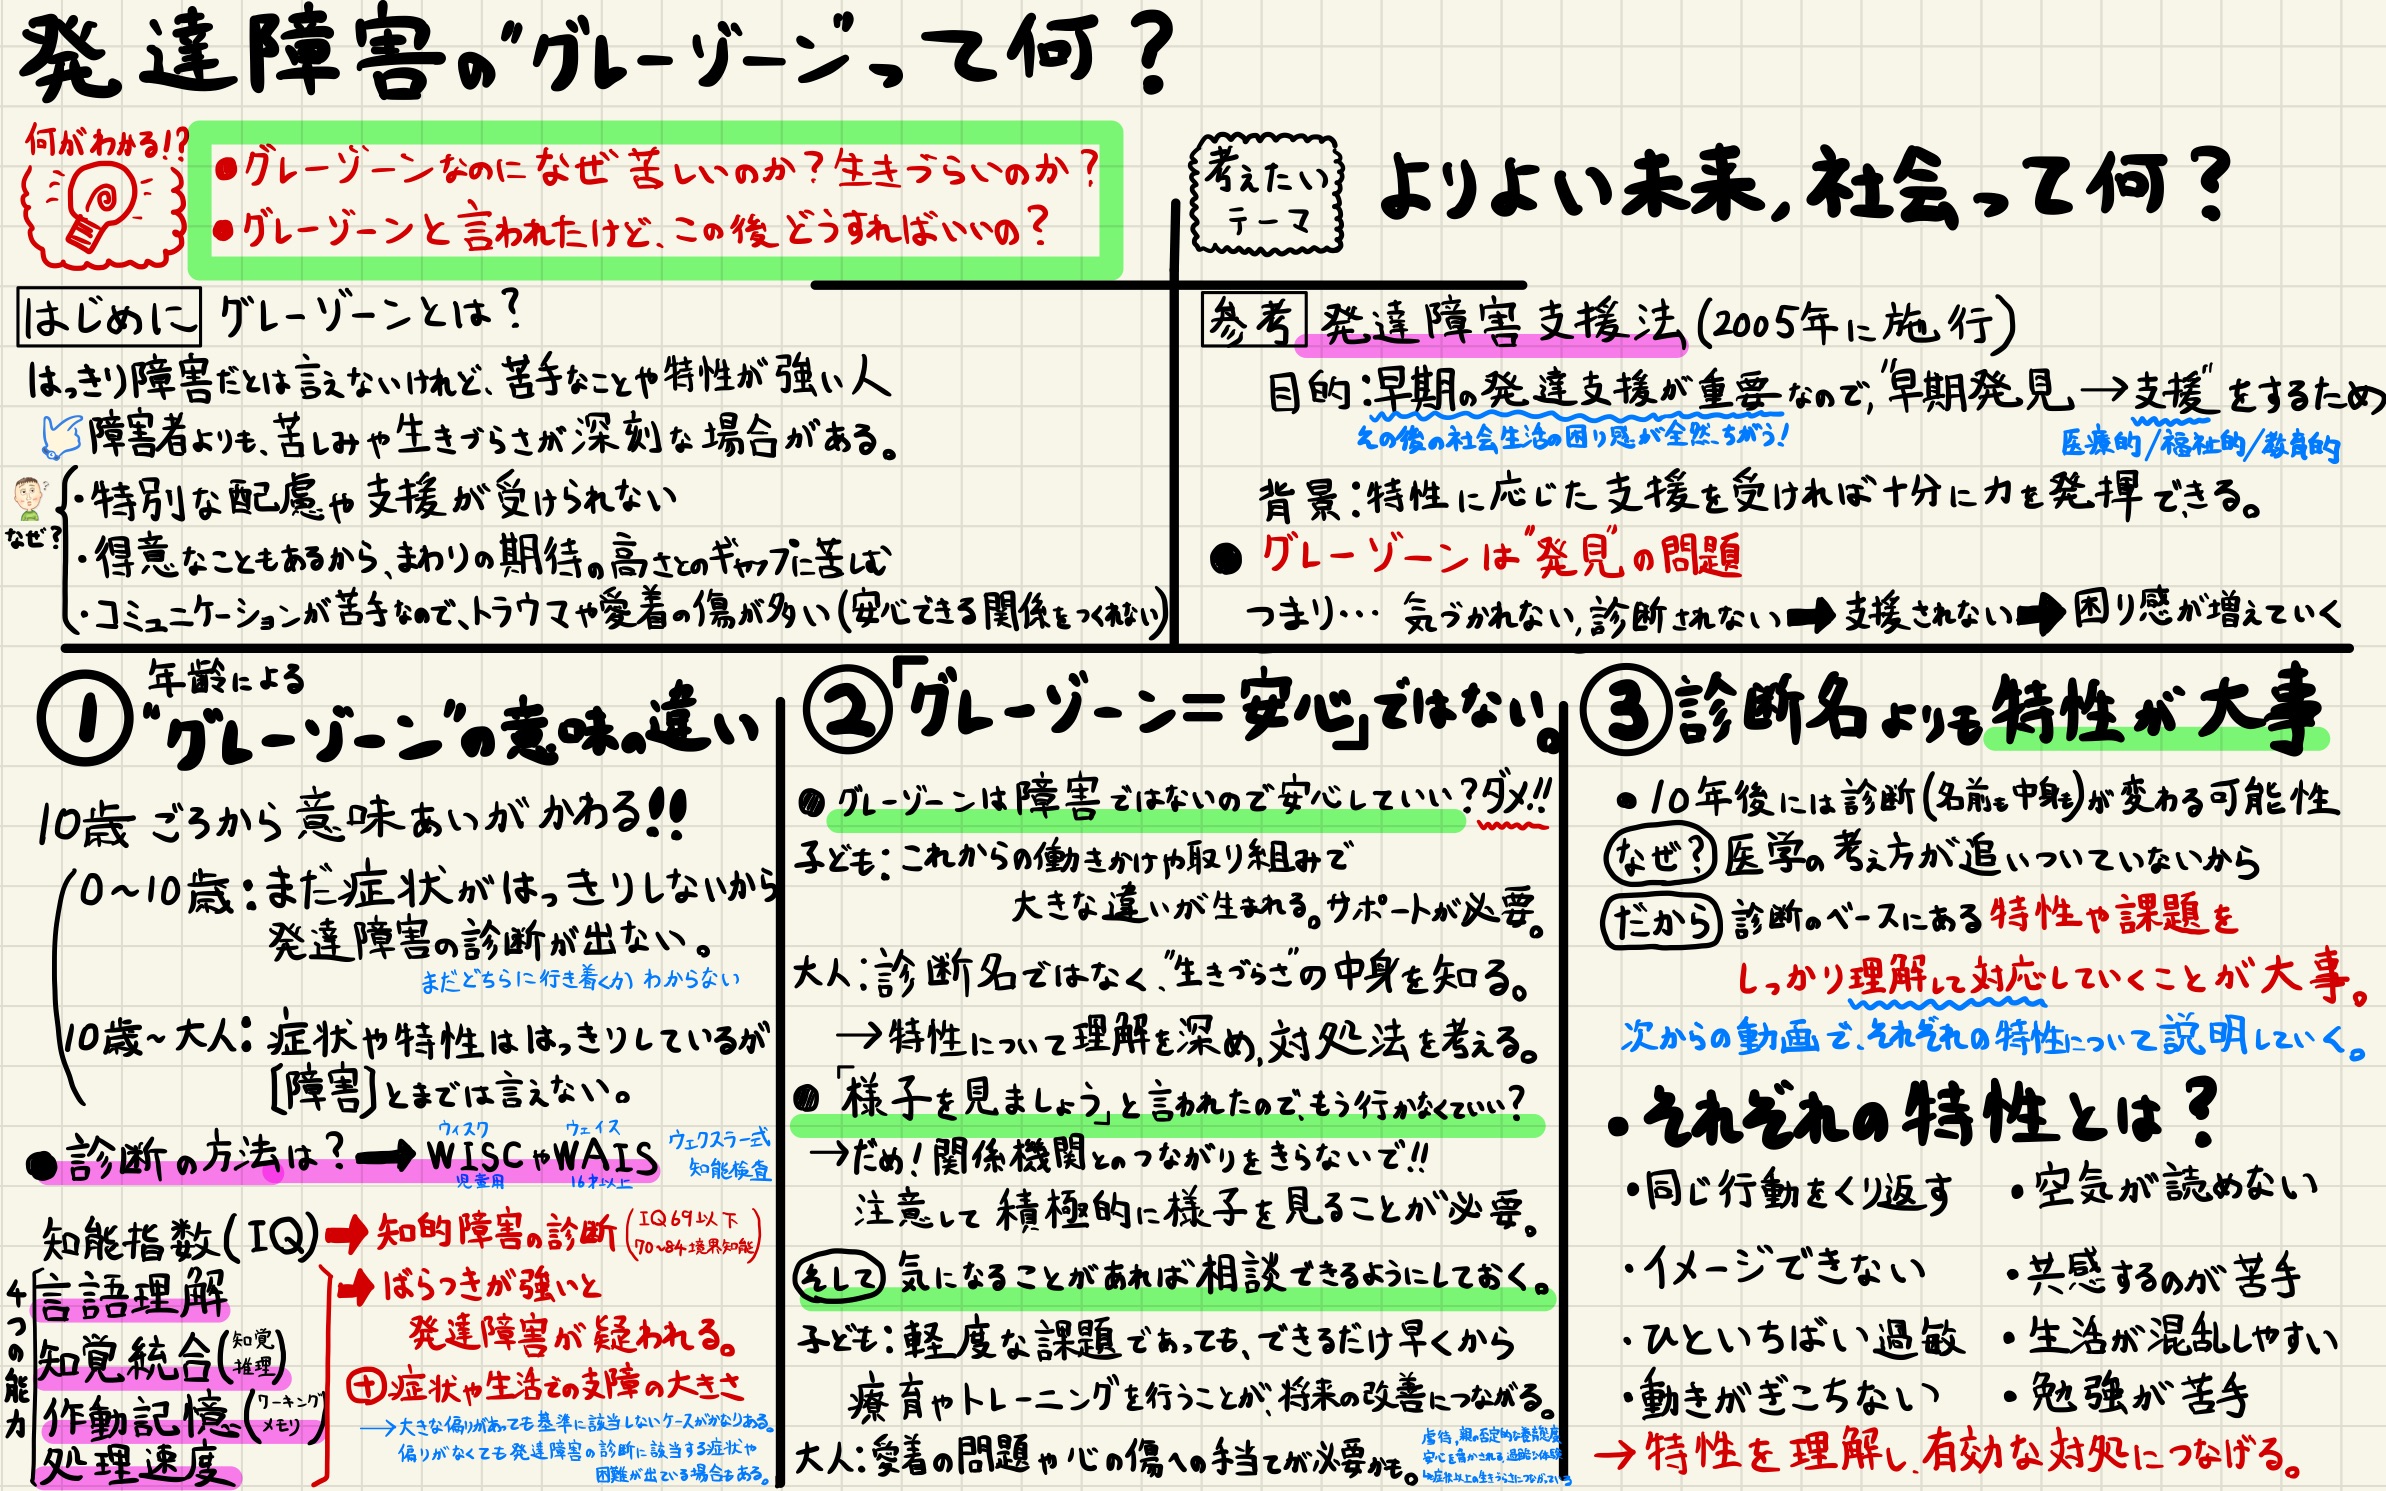 発達障害の"グレーゾーン"って何？
何がわかる!?
●グレーゾーンなのになぜ苦しいのか？生きづらいのか？
●グレーゾーンと言われたけど、この後どうすればいいの？
考えたい
テーマ
よりよい未来,社会って何？
はじめに グレーゾーンとは？
はっきり障害だとは言えないけれど、苦手なことや特性が強い人
障害者よりも、苦しみや生きづらさが深刻な場合がある。
なぜ？
・特別な配慮や支援が受けられない
・得意なこともあるから、まわりの期待の高さとのギャップに苦しむ
・コミュニケーションが苦手なので、トラウマや愛着の傷が多い(安心できる関係をつくれない)
参考 発達障害支援法(2005年に施行)
目的：早期の発達支援が重要なので,"早期発見→支援"をするため
その後の社会生活の困り感が全然、ちがう！
医療的/福祉的/教育的
背景：特性に応じた支援を受ければ十分に力を発揮できる。
●グレーゾーンは"発見"の問題
つまり… 気づかれない,診断されない➡支援されない➡困り感が増えていく
① 年齢による
"グレーゾーン"の意味の違い
10歳ごろから意味あいがかわる!!
0～10歳：まだ症状がはっきりしないから
発達障害の診断が出ない。
まだどちらに行き着くか わからない
10歳～大人：症状や特性ははっきりしているが
[障害]とまでは言えない。
●診断の方法は？➡WISCやWAIS
ウィスク
ウェイス
児童用
16才以上
ウェクスラー式
知能検査
知能指数(IQ)➡知的障害の診断(IQ69以下
70～84境界知能)
4つの能力
言語理解
知覚統合(知覚
推理)
作動記憶(ワーキング
メモリ)
処理速度
➡ばらつきが強いと
発達障害が疑われる。
⊕症状や生活での支障の大きさ
→大きな偏りがあっても基準に該当しないケースがかなりある。
偏りがなくても発達障害の診断に該当する症状や
困難が出ている場合もある。
②「グレーゾーン＝安心」ではない。
●グレーゾーンは障害ではないので安心していい？ダメ!!
子ども：これからの働きかけや取り組みで
大きな違いが生まれる。サポートが必要。
大人：診断名ではなく、"生きづらさ"の中身を知る。
→特性について理解を深め,対処法を考える。
●「様子を見ましょう」と言われたので、もう行かなくていい？
→だめ！関係機関とのつながりをきらないで!!
注意して積極的に様子を見ることが必要。
そして 気になることがあれば相談できるようにしておく。
子ども：軽度な課題であっても、できるだけ早くから
療育やトレーニングを行うことが、将来の改善につながる。
大人：愛着の問題や心の傷への手当てが必要かも。
虐待,親の否定的な養育態度
安心を脅かされる過酷な体験
↳症状以上の生きづらさにつながっている
③診断名よりも特性が大事
●10年後には診断(名前も中身も)が変わる可能性
なぜ？ 医学の考え方が追いついていないから
だから 診断のベースにある特性や課題を
しっかり理解して対応していくことが大事。
次からの動画で、それぞれの特性について説明していく。
・それぞれの特性とは？
・同じ行動をくり返す
・空気が読めない
・イメージできない
・共感するのが苦手
・ひといちばい過敏
・生活が混乱しやすい
・動きがぎこちない
・勉強が苦手
→特性を理解し、有効な対処につなげる。